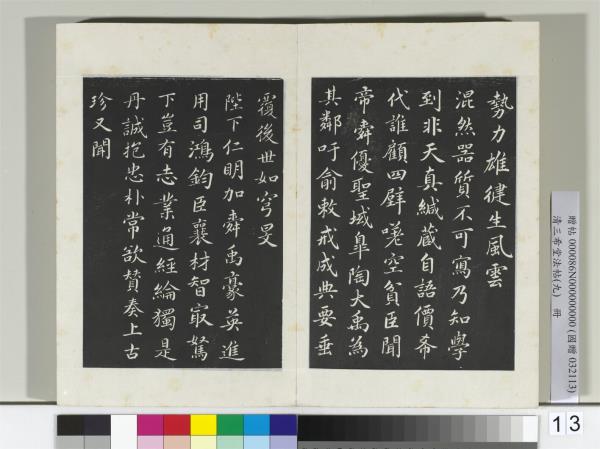 勢力雄健生風雲
混然器質不可寫乃知學
到非天真緘藏自語價希
代誰顧四壁嗟空貧臣聞
帝舜優聖域皐陶大禹為
其鄰吁俞敕戒成典要垂
覆後世如穹旻
陛下仁明加舜禹豪英進
用司鴻鈞臣襄材智最駑
下豈有志業通經綸獨是
丹誠抱忠朴常欲贊奏上古
珍又聞
贈帖 000086N000000000 (國贈 032113)
清三希堂法帖(九) 冊
13